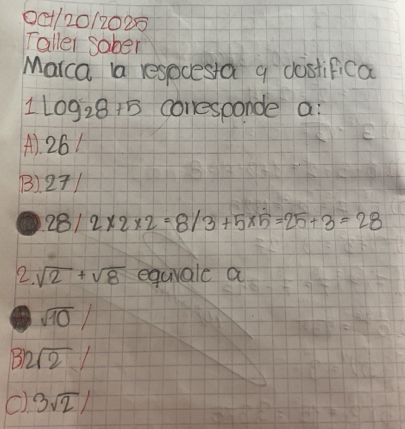 Oct/20/2025
Taller Saber
Marca la respuesta y Justifica
1 Log₂8+5 corresponde a:
A). 26 /
B). 27 /
. 28 / 2x2x2=8/3+5x5=25+3=28
2. √2 + √8 equivale a
√10 /
B) 2√2 /
C). 3√2 /